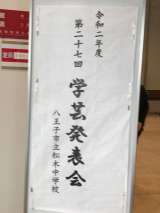 令和二年度
第二十七回
学芸発表会
八王子市立松木中学校